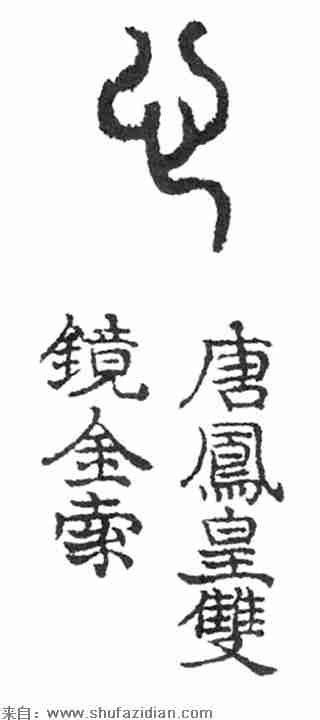 唐鳳皇雙
鏡金索
来自：www.shufazidian.com